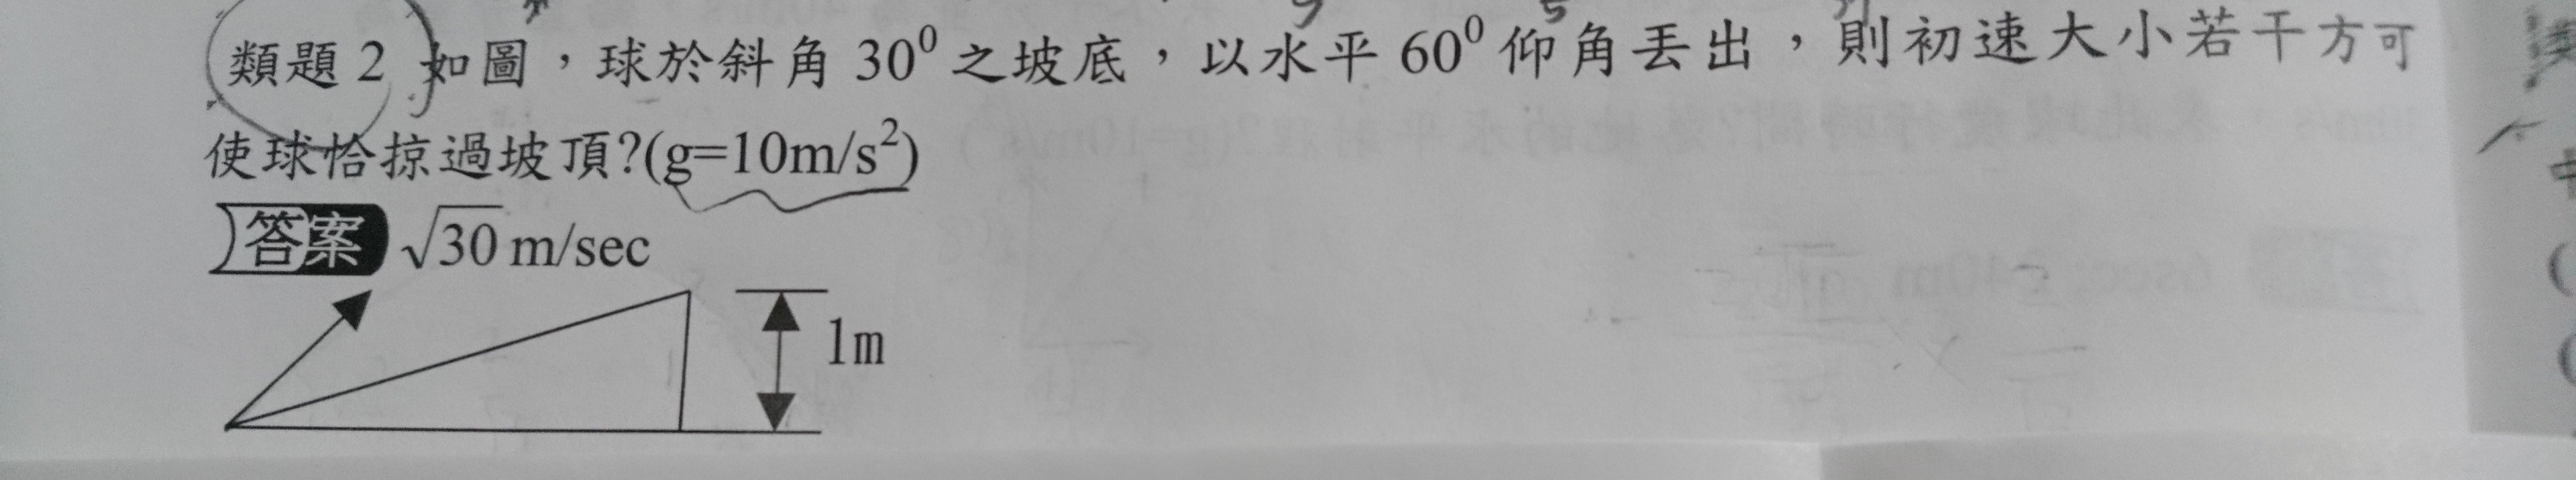 類題2 如圖，球於斜角30⁰之坡底，以水平60⁰仰角丟出，則初速大小若干方可
使球恰掠過坡頂?(g=10m/s²)
答案 √30 m/sec
1m